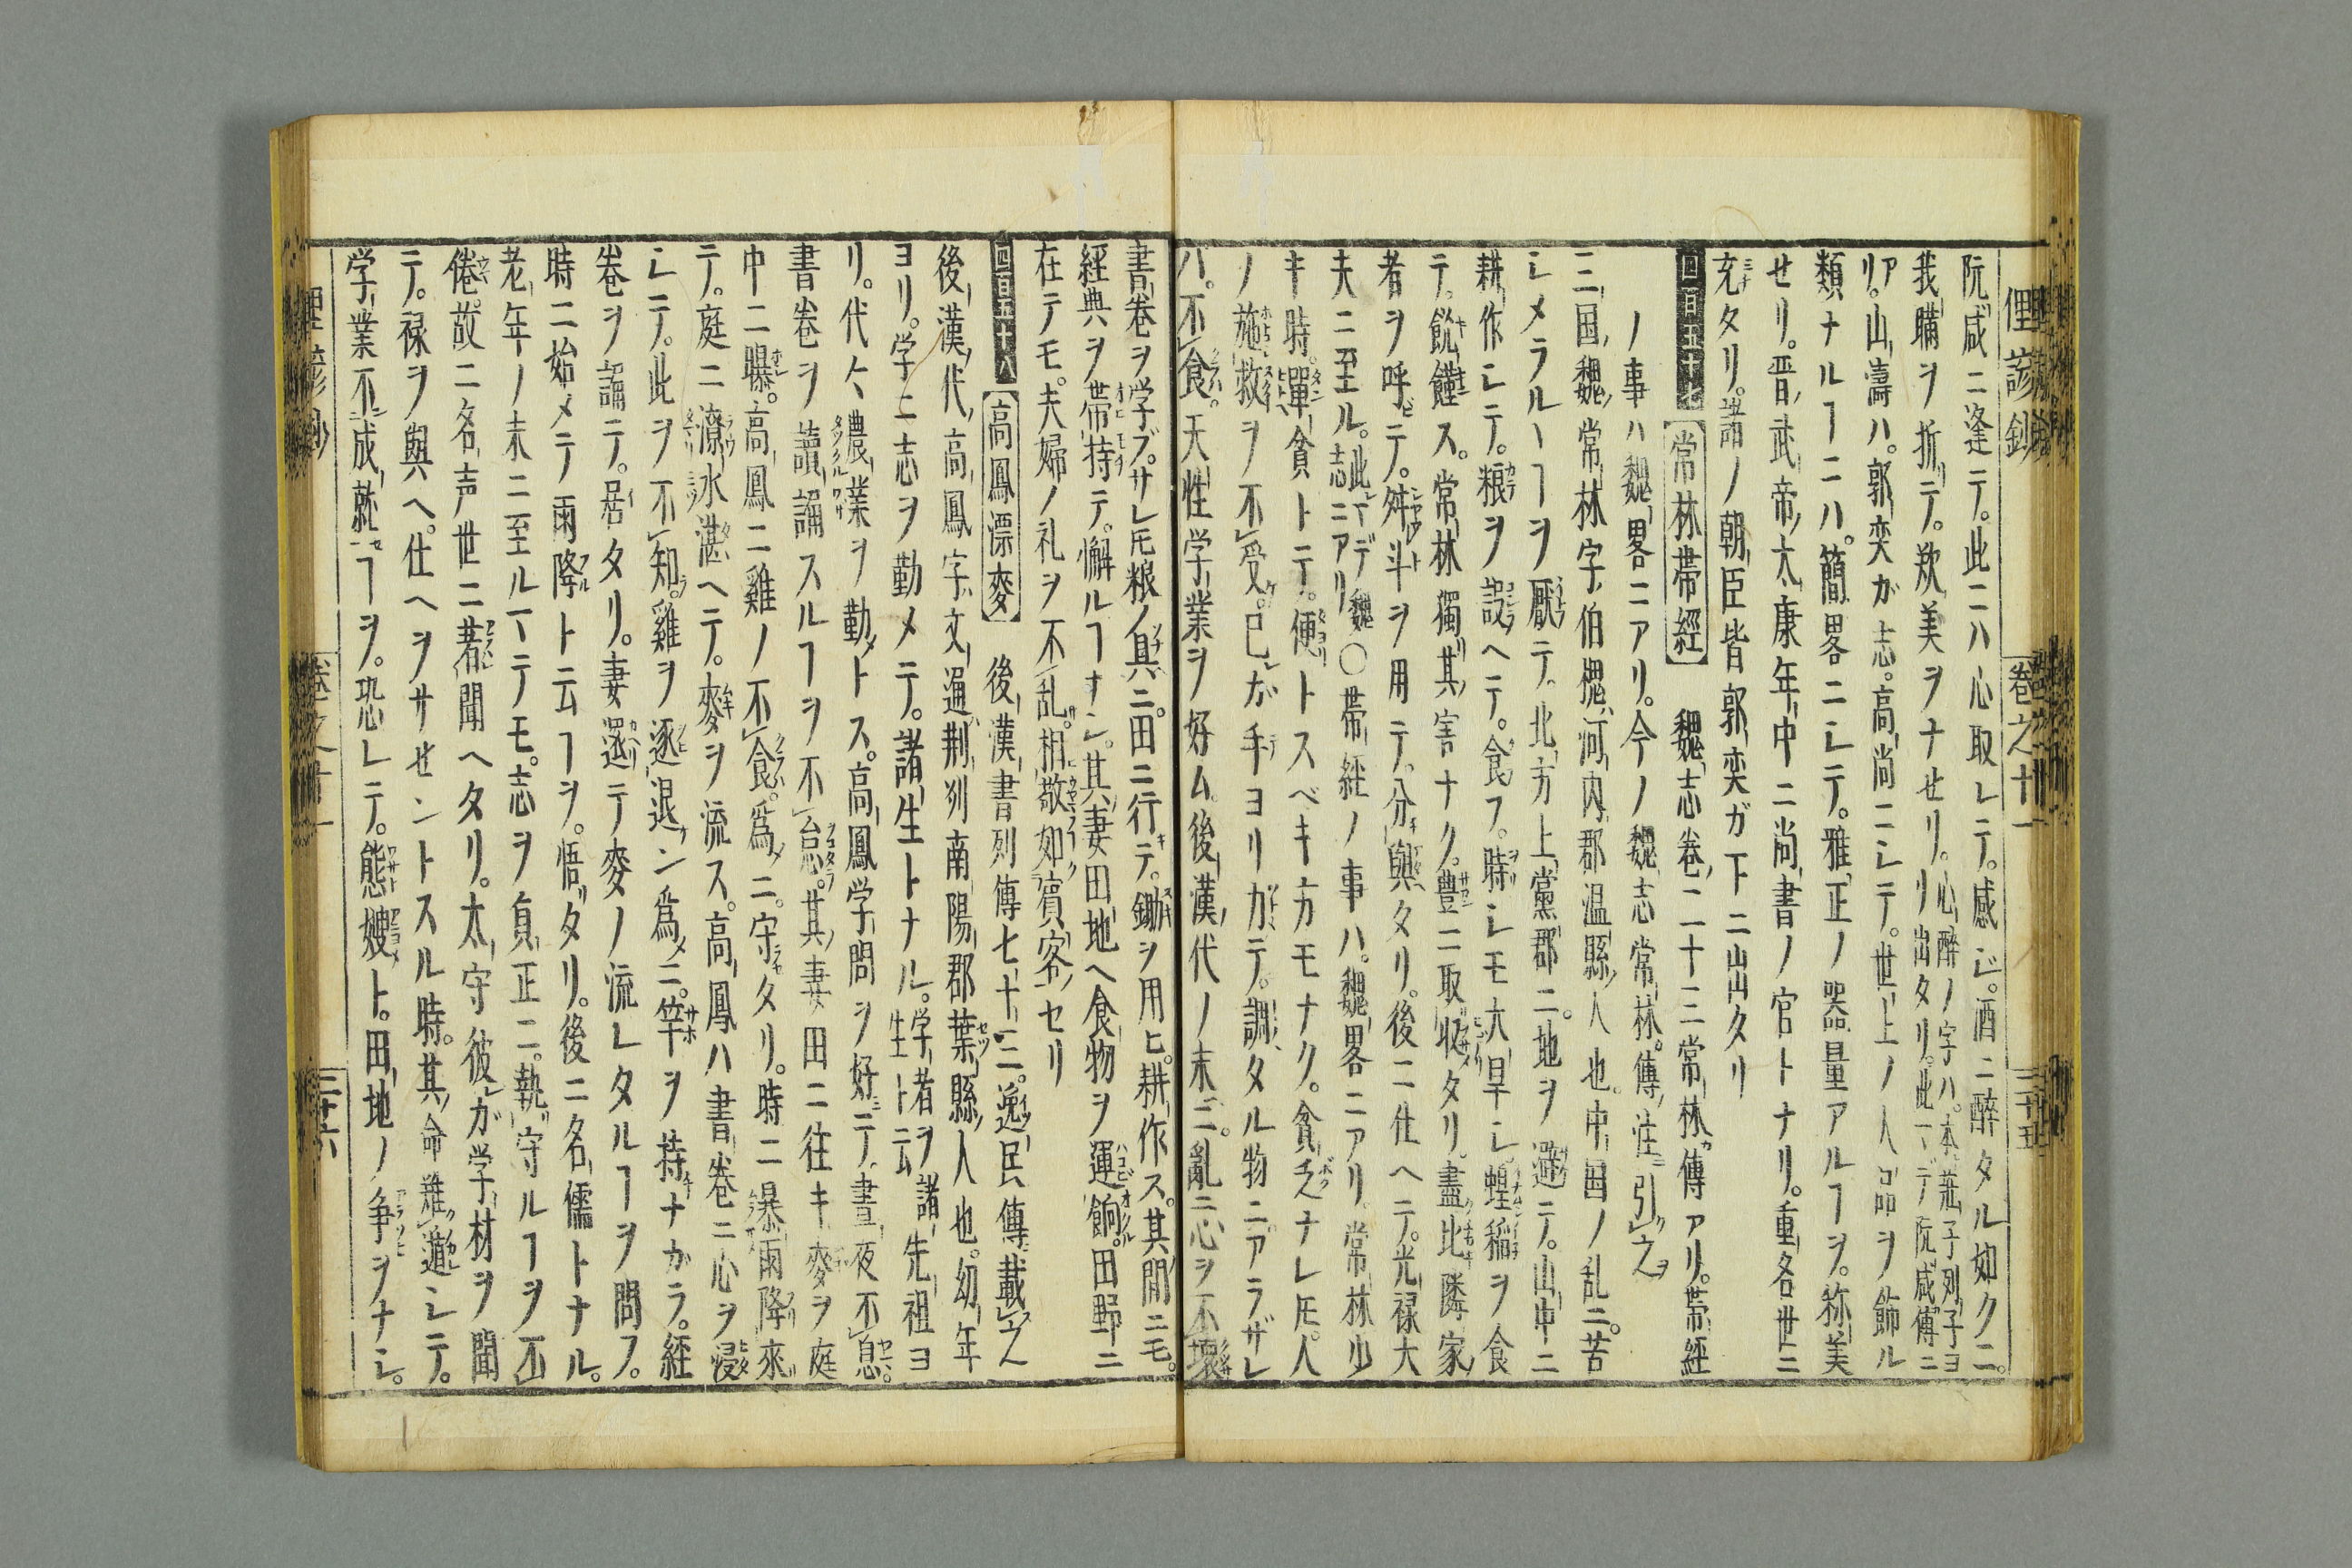 俚諺鈔 卷之十一 三十五
阮咸ニ逢テ。此ニハ心取レテ。感ジ。酒ニ醉タル如クニ。
我購ヲ折テ。歎美ヲナセリ。心醉ノ字ハ。本莊子列子ヨリ出タリ。此マデ阮咸傳ニ
アリ。山濤ハ。郭奕ガ志。高尚ニシテ。世上ノ人品ヲ飾ル
類ナルヿニハ。簡畧ニシテ。雅正ノ器量アルヿヲ。称美
セリ。晋ノ武帝ノ太康年中ニ尚書ノ官トナリ。重名世ニ
充タリ。諸ノ朝臣皆郭奕ガ下ニ出タリ
四百五十七 常林帶經 魏志卷二十三常林傳アリ。帶經
ノ事ハ魏畧ニアリ。今ノ魏志常林傳注ニ引之
三国ノ魏ノ常林字伯槐河内郡温縣ノ人也。中国ノ乱ニ。苦
シメラルヽヿヲ厭テ。北方上黨郡ニ。地ヲ避テ。山中ニ
耕作シテ。粮ヲ設ヘテ。食フ。時シモ大旱シ。蝗稲ヲ食
テ。飢饉ス。常林獨其害ナク。豊ニ取収タリ。盡比隣家
者ヲ呼テ。舛斗ヲ用テ。分與タリ。後ニ仕ヘテ。光禄大
夫ニ至ル。此マデ魏志ニアリ○帶經ノ事ハ。魏畧ニアリ。常林少
キ時。單貧トテ。便トスベキ方モナク。貧乏ナレ𪜈。人
ノ施救ヲ不受。已ガ手ヨリカテ。調タル物ニアラザレ
ハ。不食。天性学業ヲ好ム。後漢ノ代ノ末ニ。亂ニ心ヲ不壞
書卷ヲ学ブ。サレ𪜈粮ノ具ニ。田ニ行テ。鋤ヲ用ヒ。耕作ス。其間ニモ。
經典ヲ帶持テ。懈ルヿナシ。其妻田地ヘ食物ヲ運餉。田野ニ
在テモ。夫婦ノ礼ヲ不乱。相敬如賓客セリ
四百五十八 高鳳漂麥 後漢書列傳七十三。逸民傳載之
後漢ノ代高鳳字ハ文通荆刕南陽郡葉縣ノ人也。幼年
ヨリ。学ニ志ヲ勤メテ。諸生トナル。学者ヲ諸生ト云 先祖ヨ
リ。代々農業ヲ勤トス。高鳳学問ヲ好テ。晝夜不息。
書卷ヲ讀誦スルヿヲ不怠。其妻田ニ往キ麥ヲ庭
中ニ曝。高鳳ニ雞ノ不食爲ニ。守タリ。時ニ暴雨降來
テ。庭ニ潦水湛ヘテ。麥ヲ流ス。高鳳ハ書卷ニ心ヲ浸
シテ。此ヲ不知。雞ヲ逐退ン爲ニ。竿ヲ持ナカラ。經
卷ヲ誦テ。居タリ。妻還テ麥ノ流レタルヿヲ問フ。
時ニ始メテ雨降ト云ヿヲ。悟タリ。後ニ名儒トナル。
老年ノ末ニ至ルマテモ。志ヲ貞正ニ。執守ルヿヲ不
倦。故ニ名声世ニ著聞ヘタリ。太守彼ガ学材ヲ聞
テ。禄ヲ與ヘ。仕ヘヲサセントスル時。其命難遁シテ。
学業不成就ヿヲ。恐レテ。態嫂ト。田地ノ争ヲナシ。
俚諺鈔 卷之十一 三十六